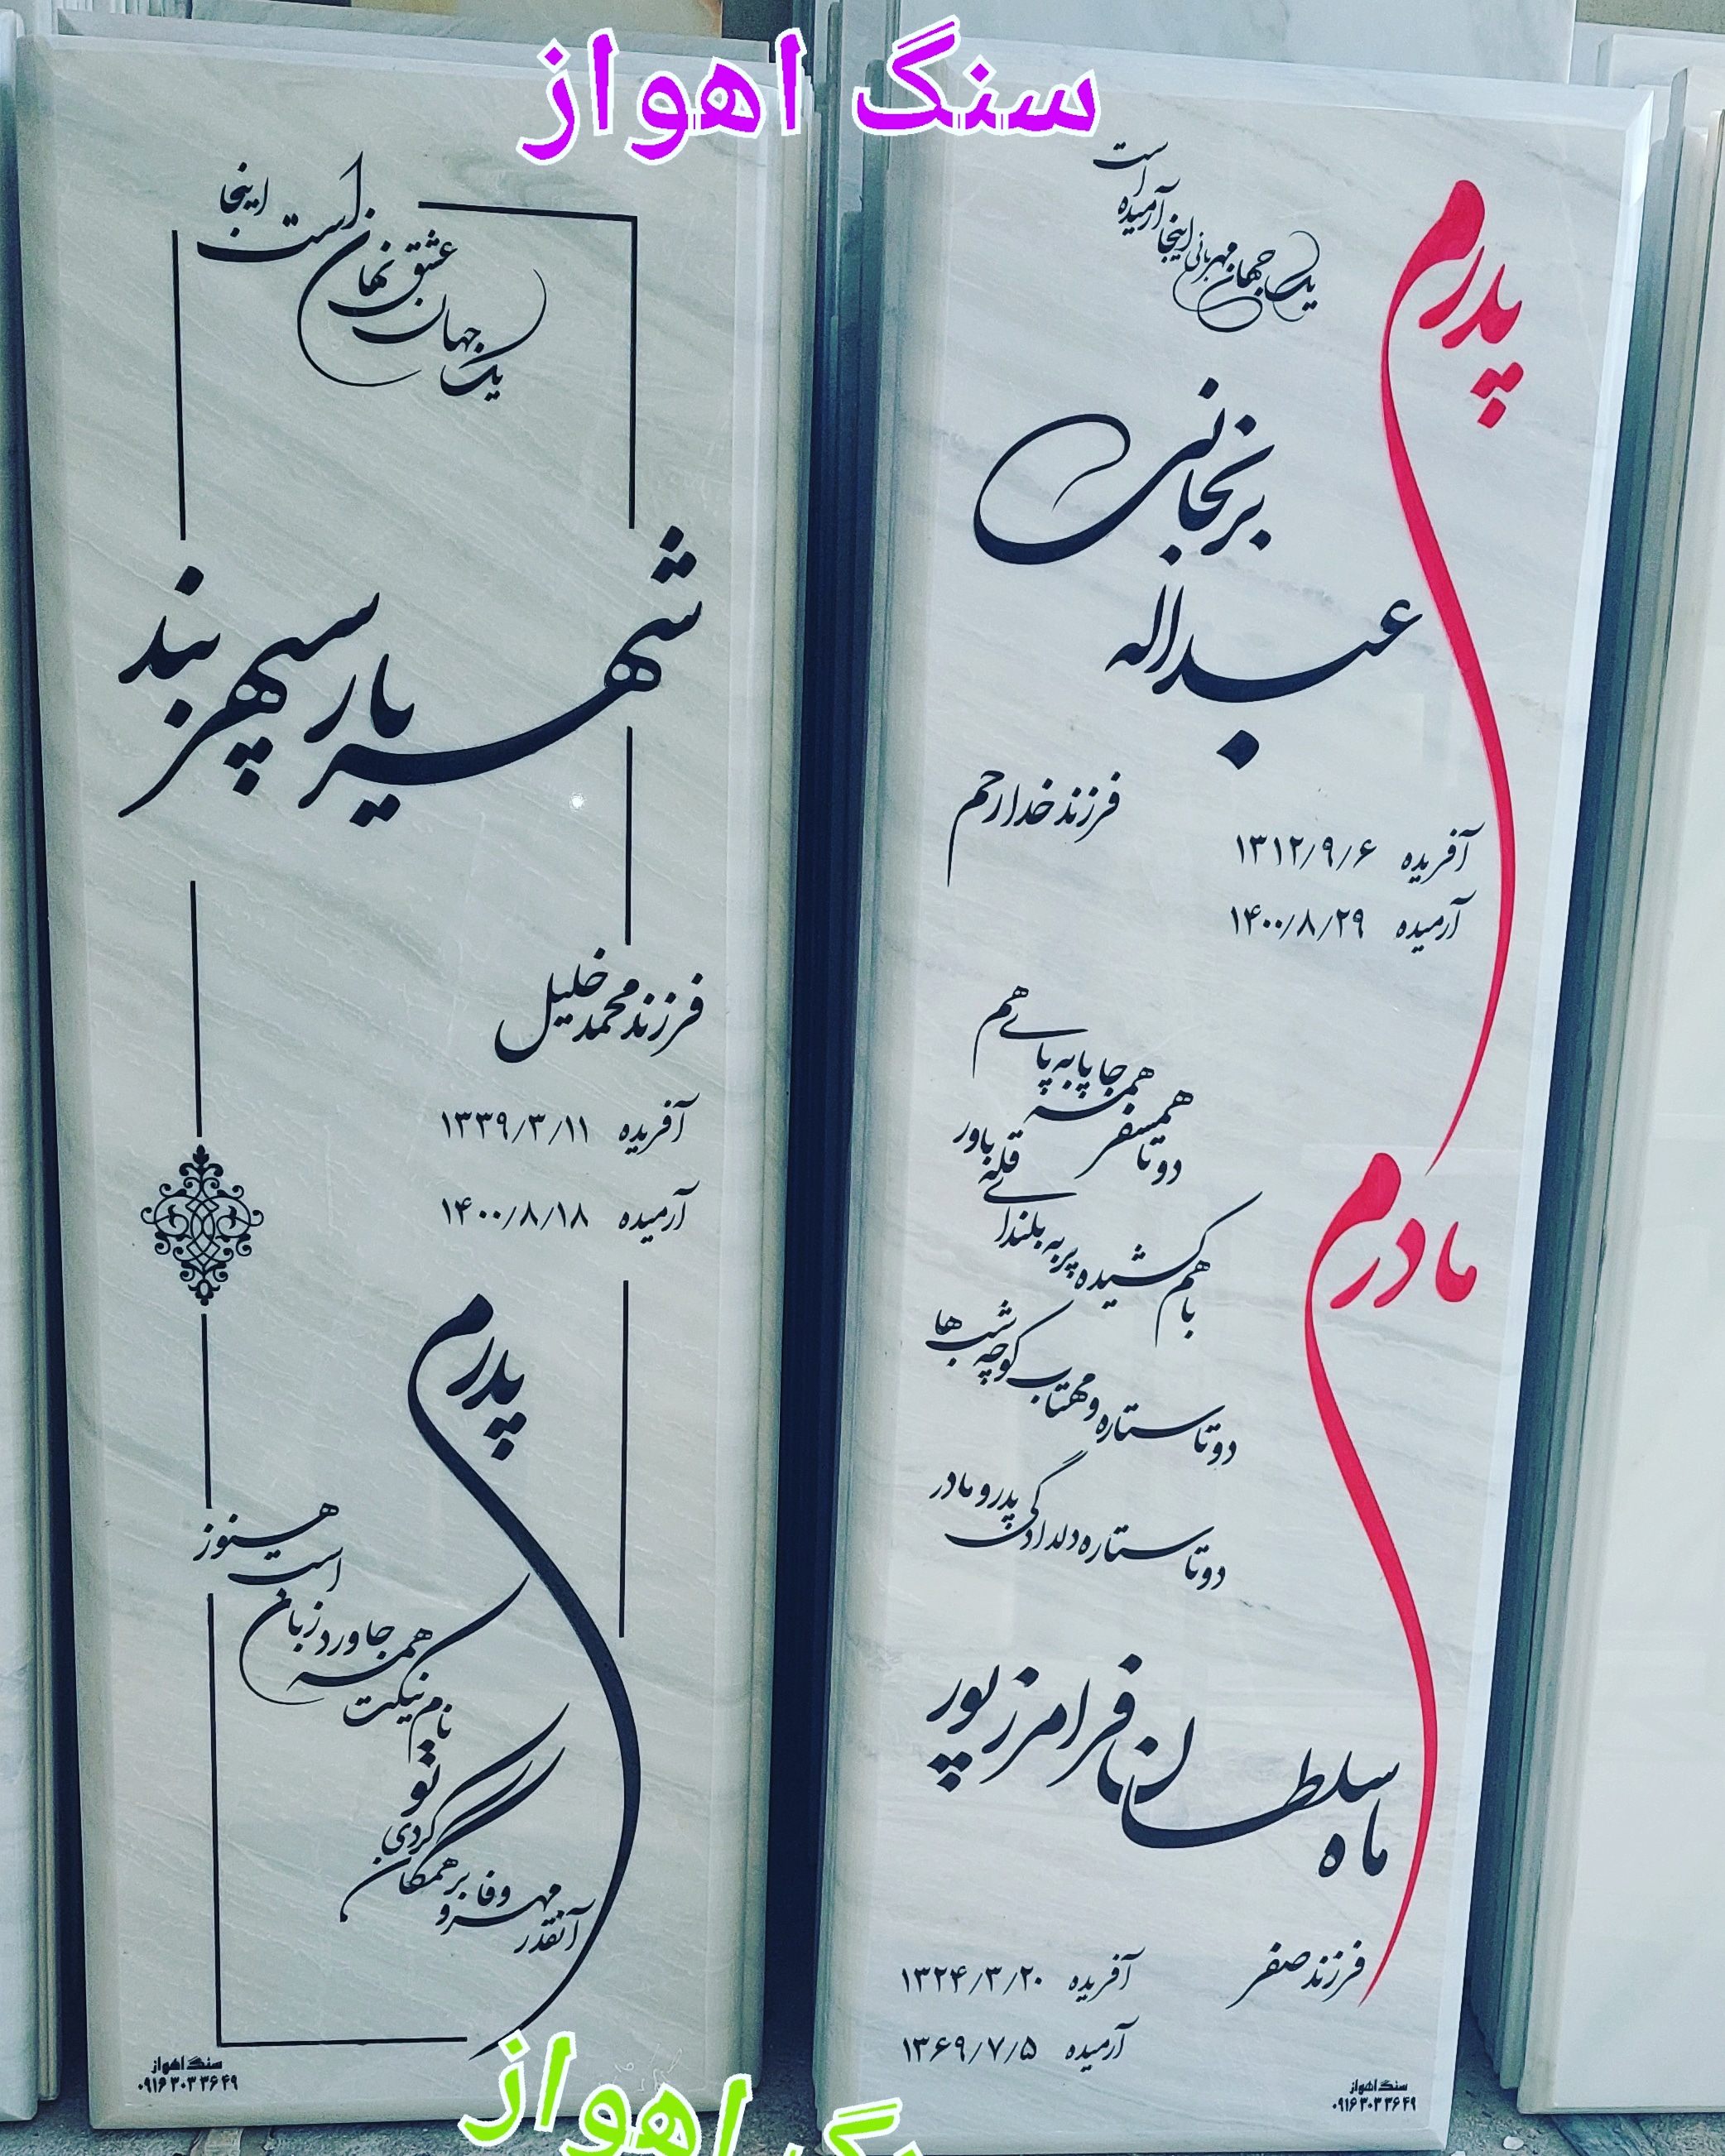 سنگ اهواز
پدرم
یک جهان مهربانی اینجا آرمیده است
عبداله برنجانی
فرزند خدارحم
آفریده ۱۳۱۲/۹/۶
آرمیده ۱۴۰۰/۸/۲۹
دوتا همسفر همه جا پا به پای هم
با هم کشیده پر به بلندای قله باور
دوتا ستاره و مهتاب کوچه شب ها
دوتا ستاره دلدادگی پدر و مادر
مادرم
ماه سلطان فرامرزپور
فرزند صفر
آفریده ۱۳۲۴/۳/۲۰
آرمیده ۱۳۶۹/۷/۵
سنگ اهواز
۰۹۱۶ ۳۰۳ ۳۶ ۴۹
یک جهان عشق نهان است اینجا
شهریار سپهربند
فرزند محمد خلیل
آفریده ۱۳۳۹/۳/۱۱
آرمیده ۱۴۰۰/۸/۱۸
پدرم
آنقدر مهر و وفا بر همگان کردی تو
نام نیکت همه جا ورد زبان است هنوز
سنگ اهواز
۰۹۱۶ ۳۰۳ ۳۶ ۴۹
اهواز